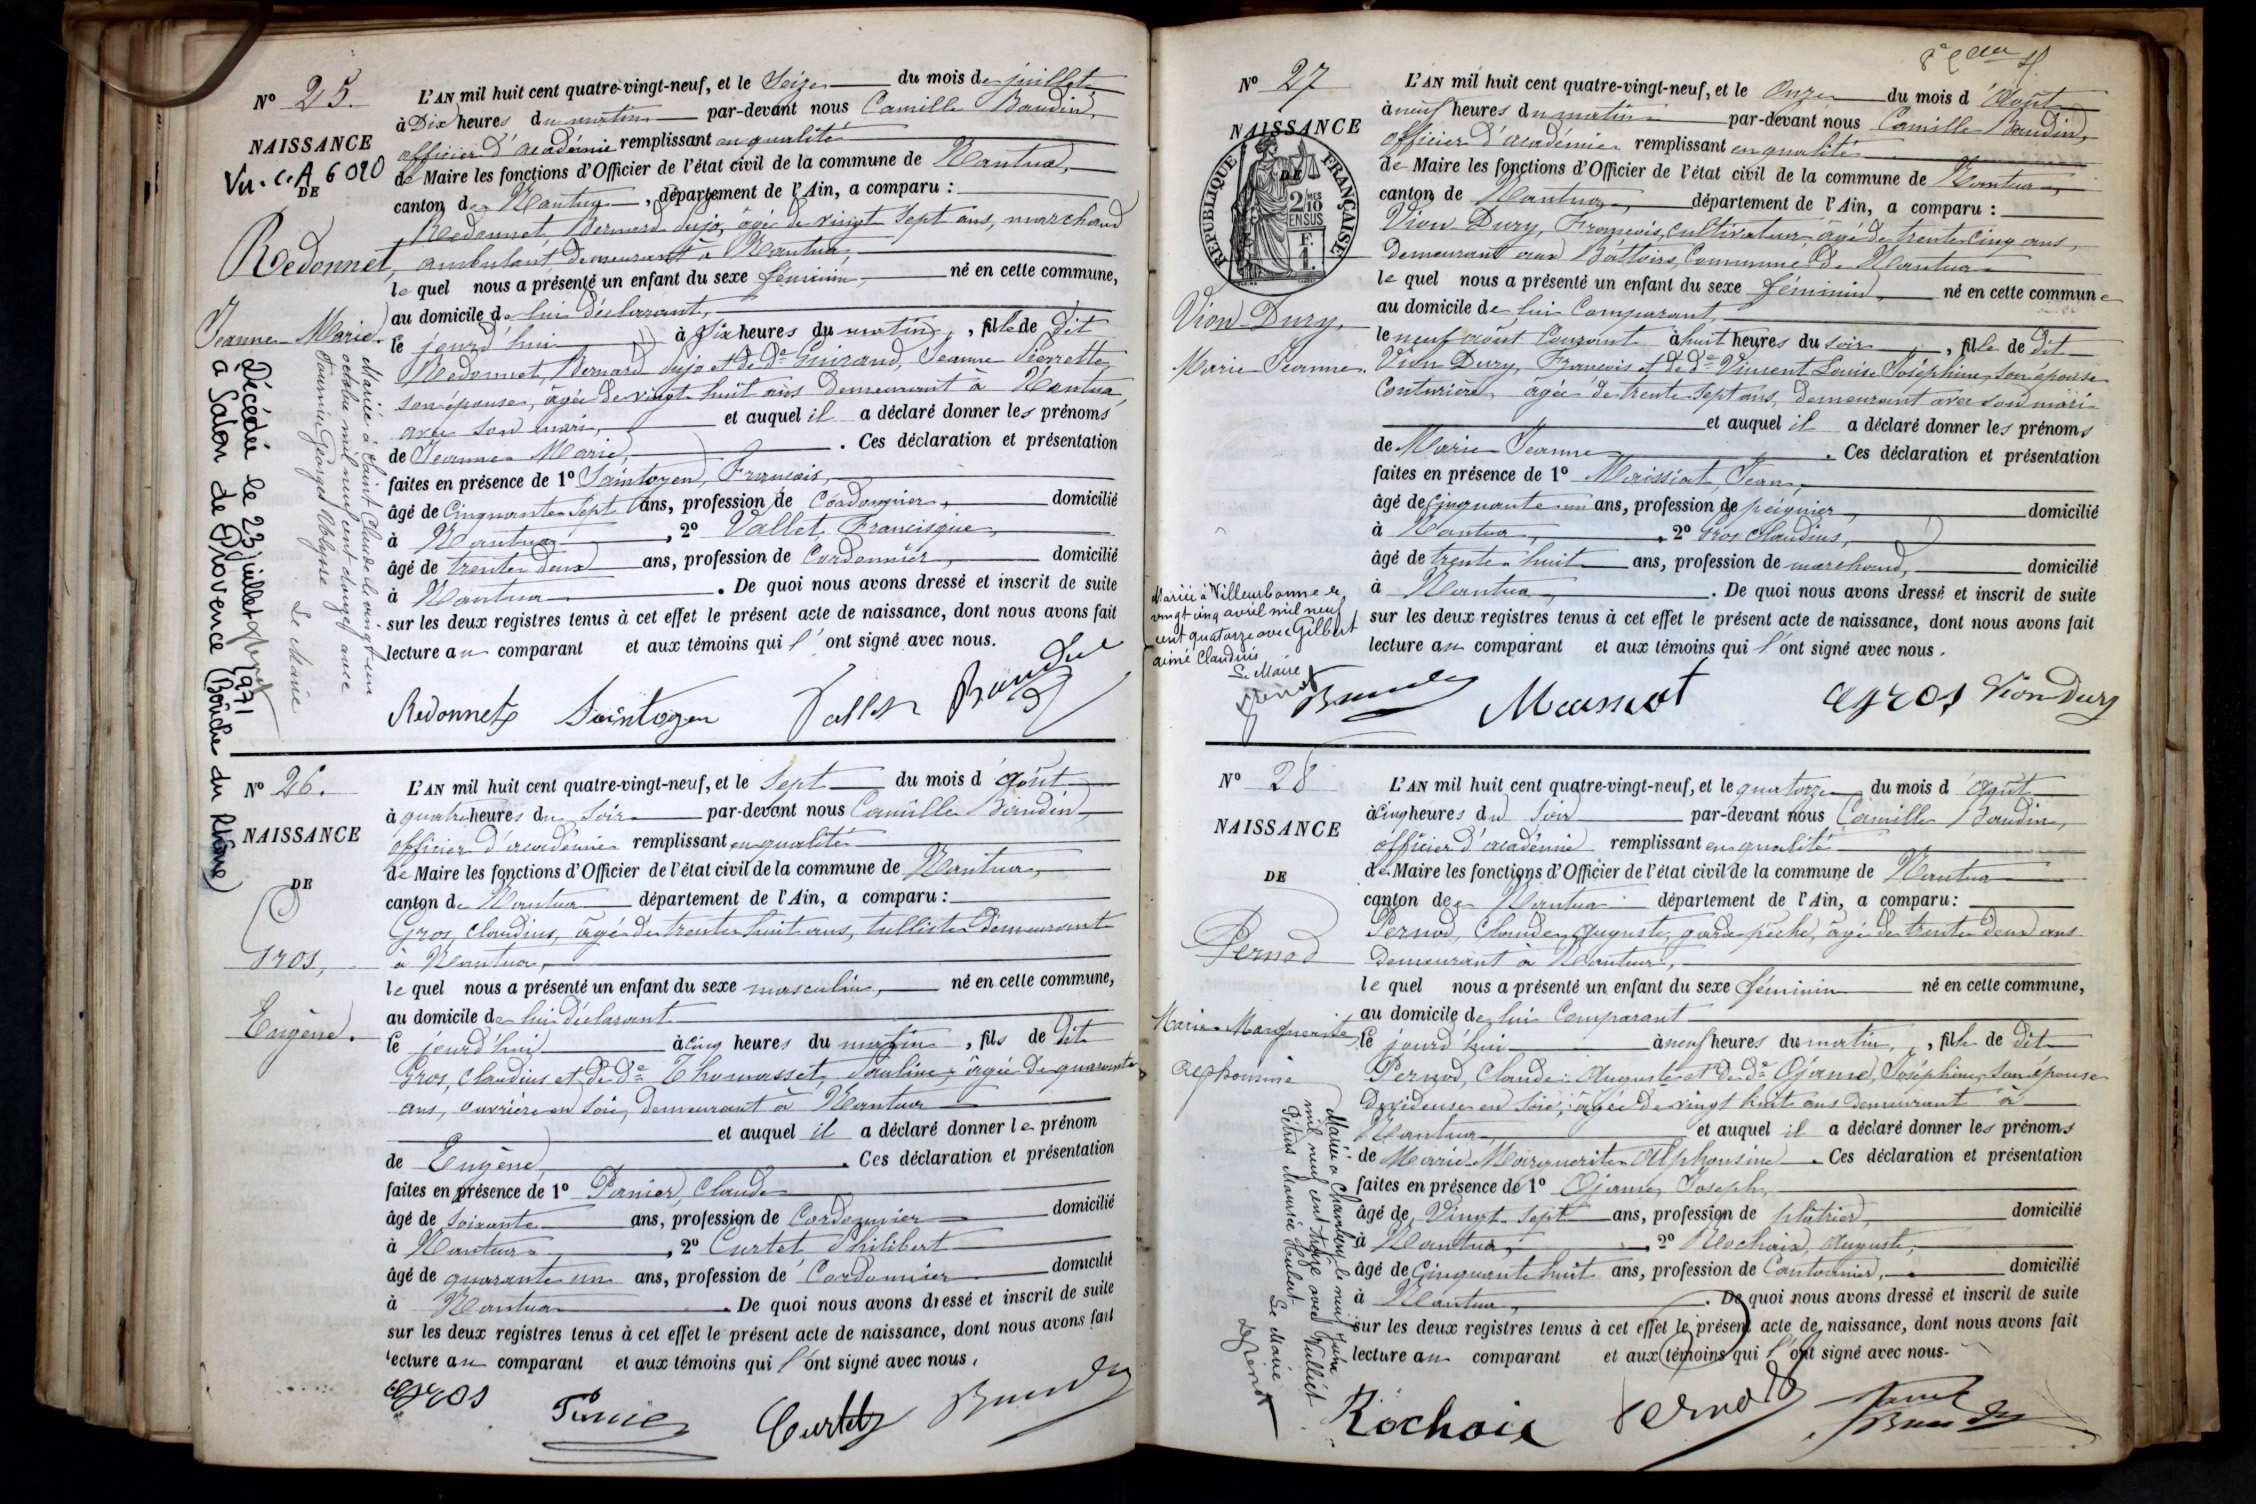 N° 25.
NAISSANCE
Vu. C. A 6020
DE
Redonnet,
Jeanne Marie.
Mariée à Saint Claude le vingt un
octobre mil neuf cent douze avec
Fournier Georges Ulysse
Le Maire
Décédée le 23 juillet 1971
à Salon de Provence (Bouches du Rhône)
L'AN mil huit cent quatre-vingt-neuf, et le Seize du mois de juillet
à Dix heures du matin par-devant nous Camille Baudin,
officier d'académie remplissant en qualité
de Maire les fonctions d'Officier de l'état civil de la commune de Nantua,
canton de Nantua, département de l'Ain, a comparu :
Redonnet, Bernard Sujo, âgé de vingt sept ans, marchand
ambulant demeurant à Nantua,
lequel nous a présenté un enfant du sexe féminin, né en cette commune,
au domicile de lui déclarant,
le jourd'hui à Six heures du matin, fille de dit
Redonnet, Bernard Sujo et de De Guiraud, Jeanne Pierrette
son épouse, âgée de vingt huit ans demeurant à Nantua,
avec son mari, et auquel il a déclaré donner les prénoms
de Jeanne Marie, . Ces déclaration et présentation
faites en présence de 1° Saintoyen, François,
âgé de Cinquante sept ans, profession de Cordonnier, domicilié
à Nantua, 2° Vallet, Francisque,
âgé de trente deux ans, profession de Cordonnier, domicilié
à Nantua . De quoi nous avons dressé et inscrit de suite
sur les deux registres tenus à cet effet le présent acte de naissance, dont nous avons fait
lecture au comparant et aux témoins qui l'ont signé avec nous.
Redonnet Saintoyen Vallet Baudin
N° 26.
NAISSANCE
DE
Gros,
Eugène.
L'AN mil huit cent quatre-vingt-neuf, et le Sept du mois d'Août
à quatre heures du Soir par-devant nous Camille Baudin
officier d'académie remplissant en qualité
de Maire les fonctions d'Officier de l'état civil de la commune de Nantua,
canton de Nantua département de l'Ain, a comparu :
Gros, Claudius, âgé de trente huit ans, tulliste demeurant
à Nantua,
lequel nous a présenté un enfant du sexe masculin, né en cette commune,
au domicile de lui déclarant
le jourd'hui à cinq heures du matin, fils de dit
Gros, Claudius et de De Thomasset, Pauline, âgée de quarante
ans, ouvrière en soie, demeurant à Nantua
et auquel il a déclaré donner le prénom
de Eugène, . Ces déclaration et présentation
faites en présence de 1° Pernier, Claude
âgé de Soixante ans, profession de Cordonnier domicilié
à Nantua, 2° Curtet Philibert
âgé de quarante un ans, profession de Cordonnier domicilié
à Nantua . De quoi nous avons dressé et inscrit de suite
sur les deux registres tenus à cet effet le présent acte de naissance, dont nous avons fait
lecture au comparant et aux témoins qui l'ont signé avec nous.
Gros Curtet Baudin
N° 27
NAISSANCE
DE
RÉPUBLIQUE FRANÇAISE
2/10 EN SUS
F. 1.
Vion Dury,
Marie Jeanne.
Mariée à Villeurbanne le
vingt cinq avril mil neuf
cent quatorze avec Gilbert
aimé Claudius
Le Maire
L'AN mil huit cent quatre-vingt-neuf, et le Onze du mois d'Août
à neuf heures du matin par-devant nous Camille Baudin,
officier d'académie remplissant en qualité
de Maire les fonctions d'Officier de l'état civil de la commune de Nantua,
canton de Nantua, département de l'Ain, a comparu :
Vion Dury, François, cultivateur âgé de trente cinq ans,
demeurant aux Battoirs, Commune de Nantua
lequel nous a présenté un enfant du sexe féminin, né en cette commune
au domicile de lui Comparant
le neuf août Courant à huit heures du soir, fille de dit
Vion Dury, François et de De Vincent Louise Joséphine, son épouse
Couturière, âgée de trente sept ans, demeurant avec son mari
et auquel il a déclaré donner les prénoms
de Marie Jeanne . Ces déclaration et présentation
faites en présence de 1° Maissiat, Jean,
âgé de Cinquante un ans, profession de peignier, domicilié
à Nantua, 2° Gros Claudius,
âgé de trente huit ans, profession de marchand, domicilié
à Nantua, . De quoi nous avons dressé et inscrit de suite
sur les deux registres tenus à cet effet le présent acte de naissance, dont nous avons fait
lecture au comparant et aux témoins qui l'ont signé avec nous.
Baudin Maissiat Gros Vion Dury
N° 28
NAISSANCE
DE
Pernod
Marie Marguerite
Alphonsine
Mariée à Chambéry le neuf juin
mil neuf cent treize avec Vulliet
Pétrus Maurice Hubert
Le Maire
L'AN mil huit cent quatre-vingt-neuf, et le quatorze du mois d'Août
à Cinq heures du Soir par-devant nous Camille Baudin,
officier d'académie remplissant en qualité
de Maire les fonctions d'Officier de l'état civil de la commune de Nantua
canton de Nantua département de l'Ain, a comparu :
Pernod, Claude Auguste, garde pêche, âgé de trente deux ans
demeurant à Nantua,
lequel nous a présenté un enfant du sexe féminin né en cette commune,
au domicile de lui Comparant
le jourd'hui à neuf heures du matin, fille de dit
Pernod, Claude Auguste et de De Ojame, Joséphine, son épouse
devideuse en soie, âgée de vingt huit ans demeurant à
Nantua, et auquel il a déclaré donner les prénoms
de Marie Marguerite Alphonsine . Ces déclaration et présentation
faites en présence de 1° Ojame, Joseph,
âgé de Vingt sept ans, profession de plâtrier, domicilié
à Nantua, 2° Rochaix, Auguste,
âgé de Cinquante huit ans, profession de Cantonnier, domicilié
à Nantua, . De quoi nous avons dressé et inscrit de suite
sur les deux registres tenus à cet effet le présent acte de naissance, dont nous avons fait
lecture au comparant et aux témoins qui l'ont signé avec nous.
Rochaix Pernod Baudin